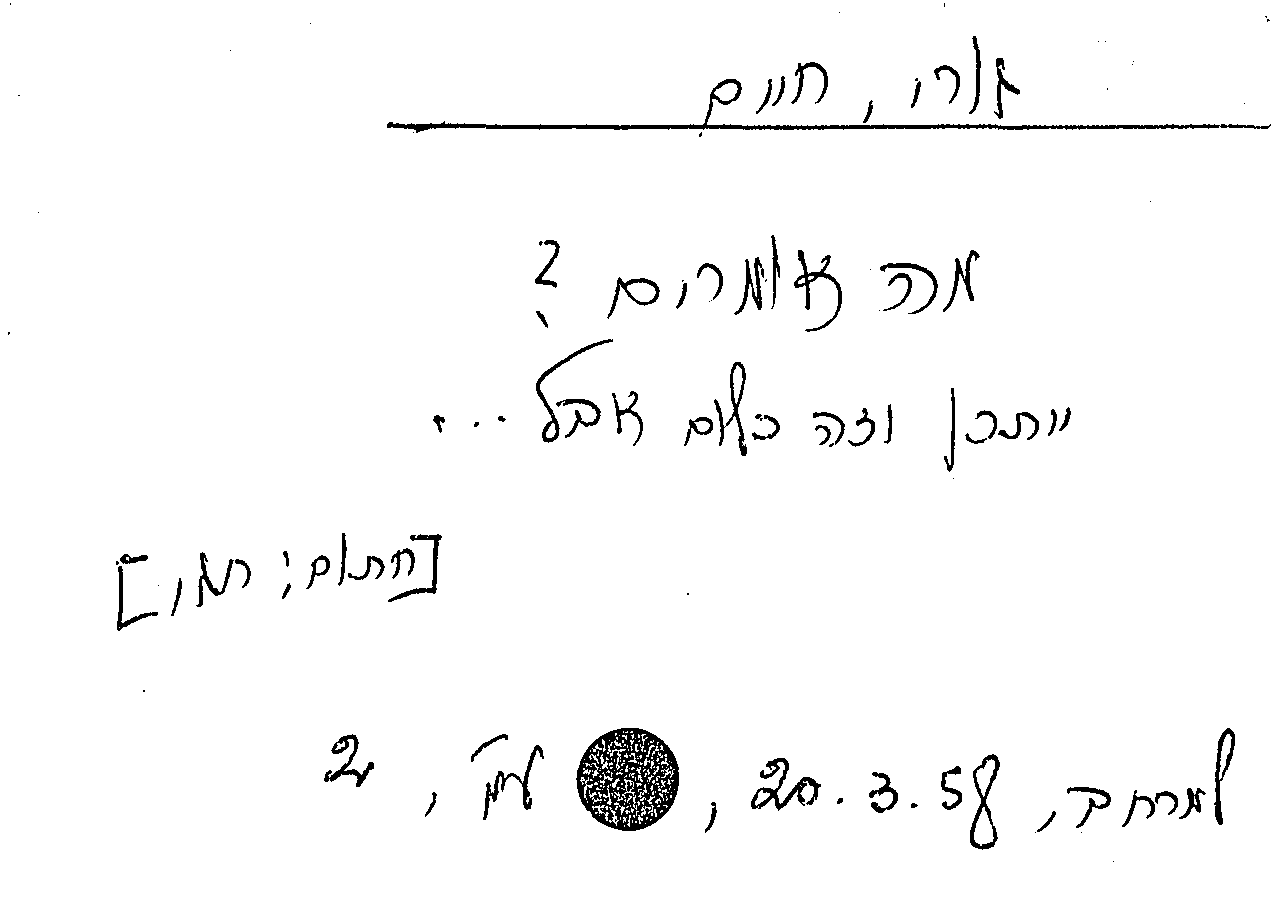 גורי, חיים
מה אומרים?
ייתכן וזה כלום אבל...
[חתום: ]
למרחב, 20.3.58, עמ' 2